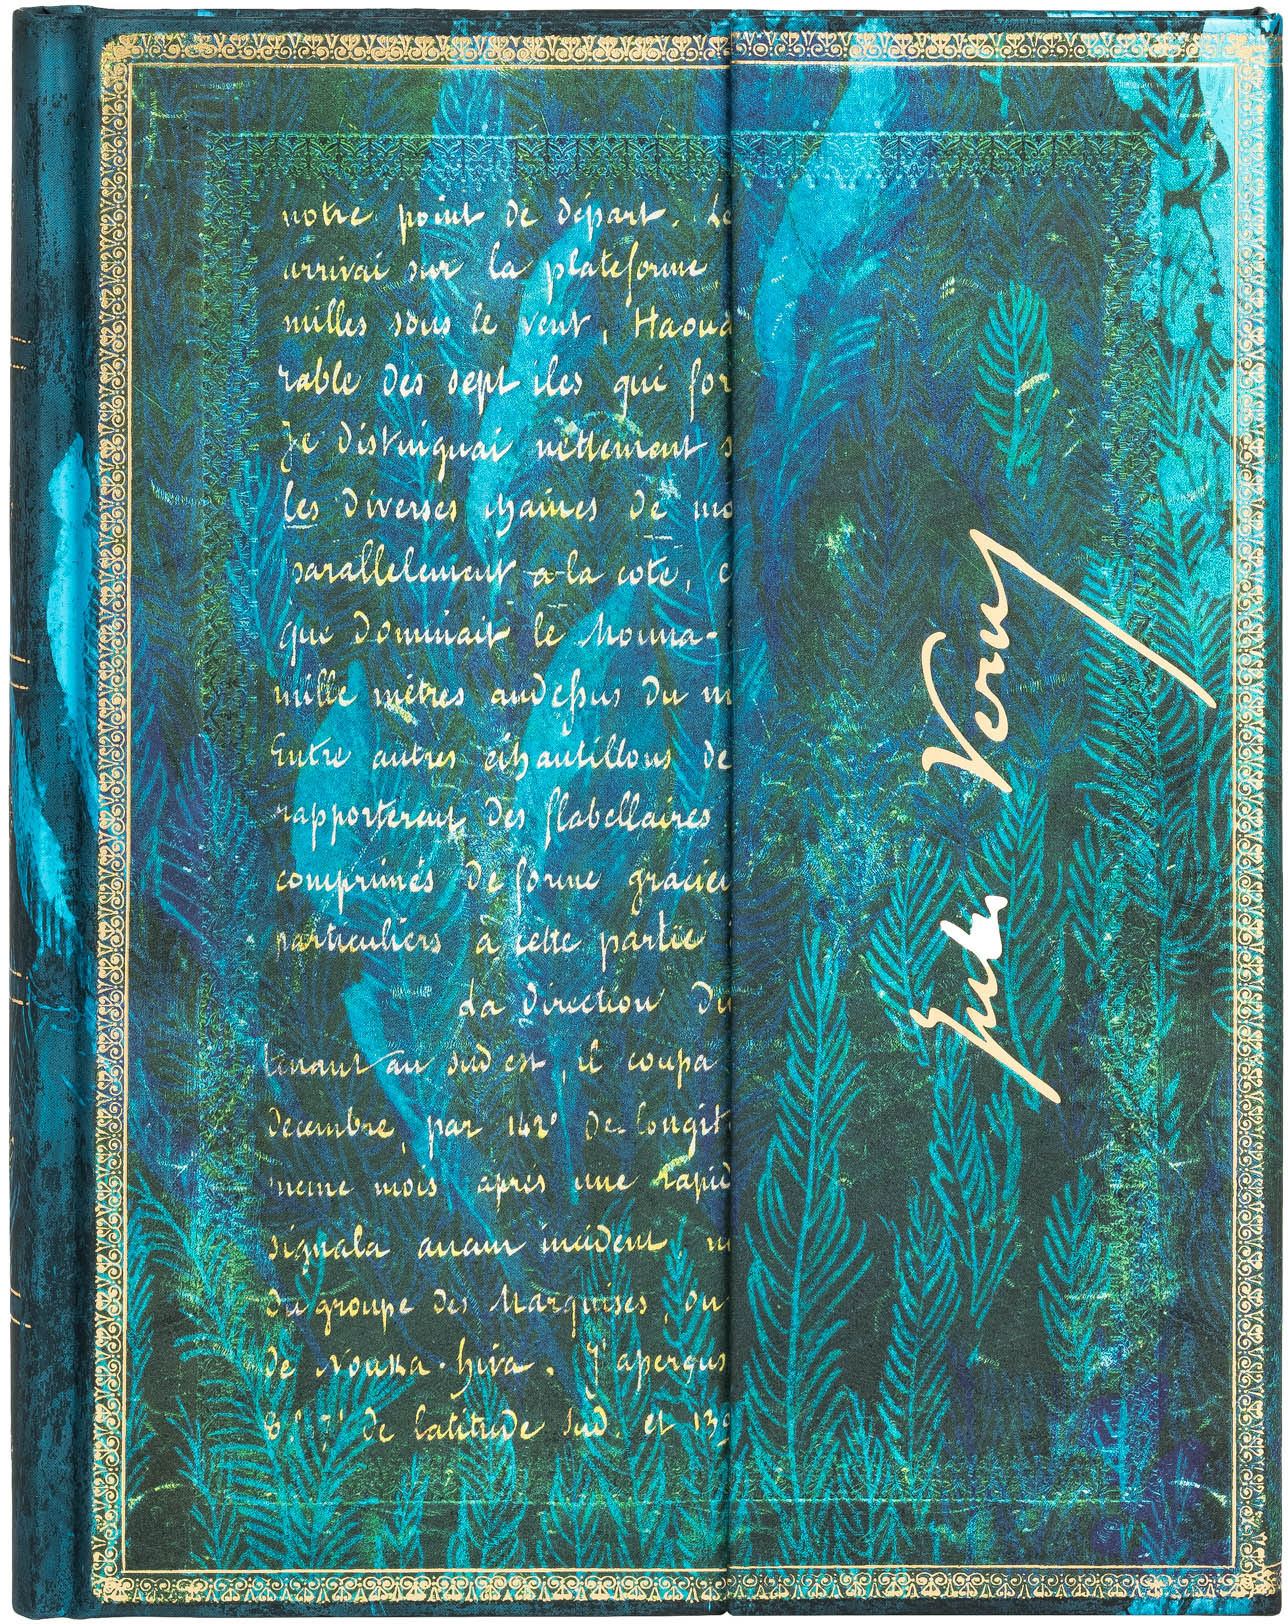 notre point de départ. Le
arrivai sur la plateforme
milles sous le vent, Haoua
rable des sept iles qui for
Je distinguai nettement s
les diverses chaines de mo
parallelement a la cote, e
que dominait le Mouna-
mille mètres audessus du m
Entre autres échantillons de
rapporterent des flabellaires
comprimés de forme gracieu
particuliers à cette partie
La direction du
tenant au sud est, il coupa
Decembre, par 142° de longit
meme mois après une rapid
signala aucun incident, n
du groupe des Marquises, ou
de Nouka-hiva. J'aperçus
8° 7' de latitude sud. et 139
Jules Verne